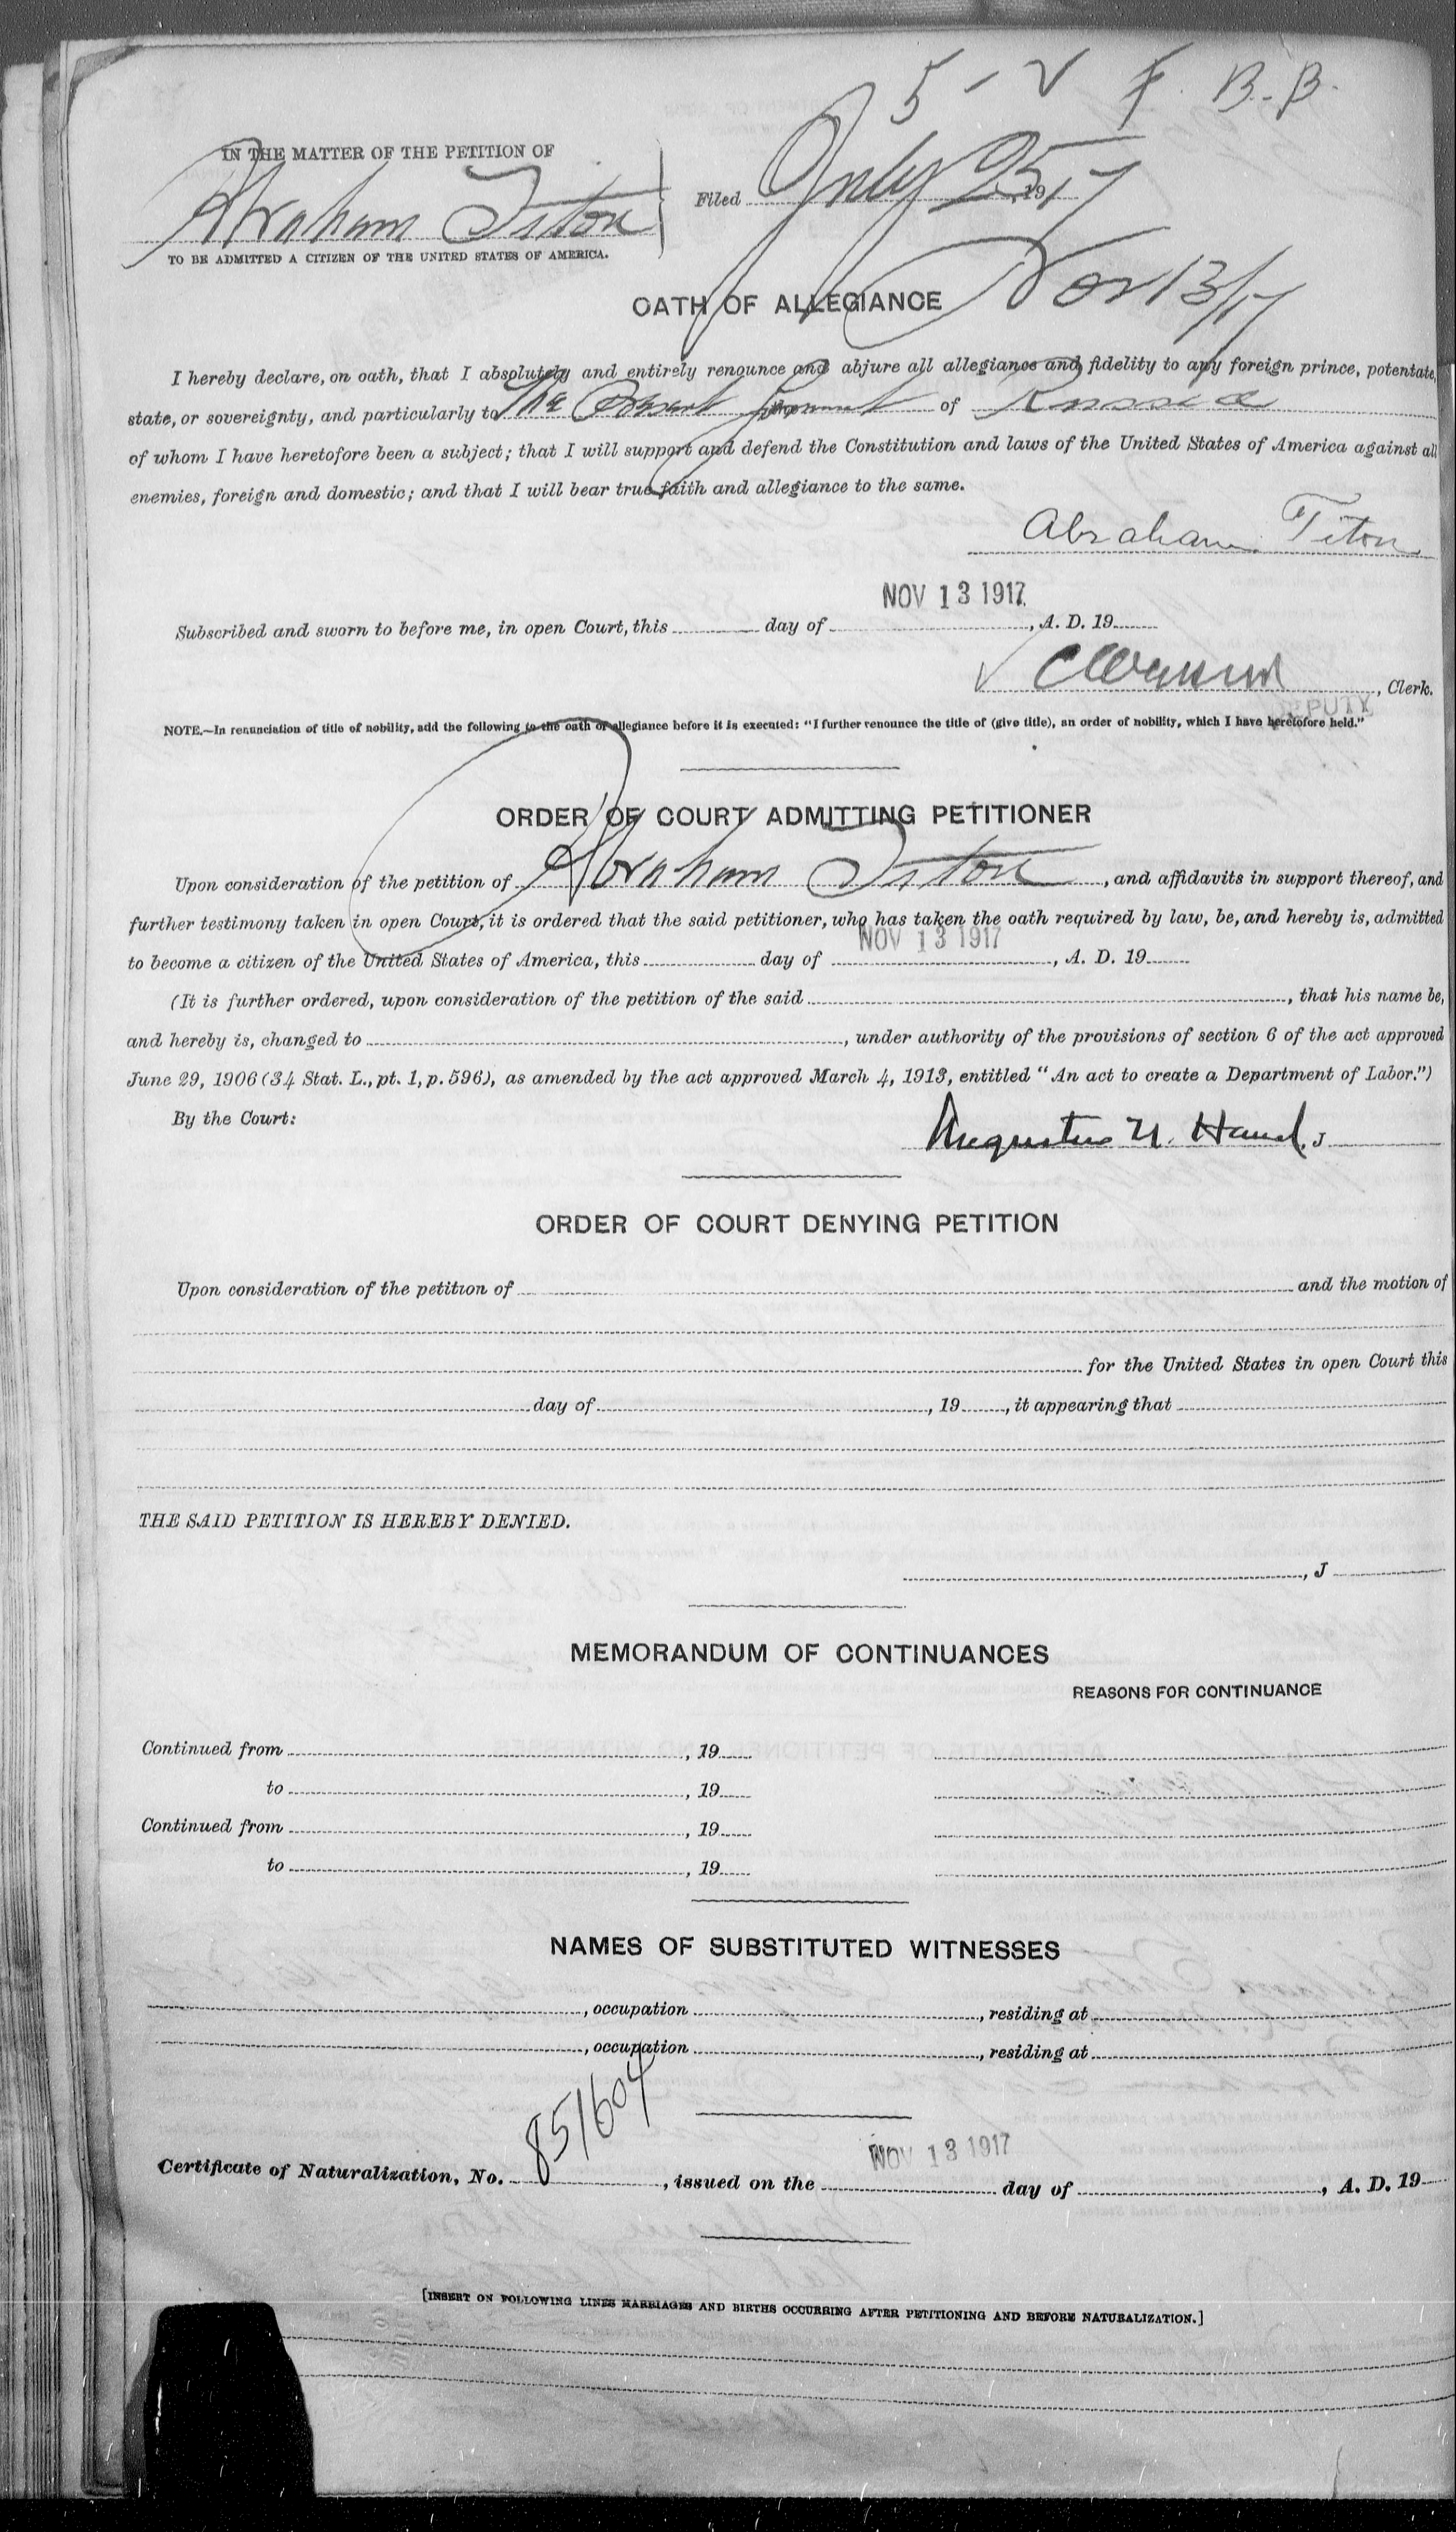 5 - V F. B. B.
IN THE MATTER OF THE PETITION OF
Abraham Titon
Filed July 25, 1917
TO BE ADMITTED A CITIZEN OF THE UNITED STATES OF AMERICA.
Nov 13/17
OATH OF ALLEGIANCE
I hereby declare, on oath, that I absolutely and entirely renounce and abjure all allegiance and fidelity to any foreign prince, potentate,
state, or sovereignty, and particularly to The Present Government of Russia
of whom I have heretofore been a subject; that I will support and defend the Constitution and laws of the United States of America against all
enemies, foreign and domestic; and that I will bear true faith and allegiance to the same.
Abraham Titon
NOV 13 1917
Subscribed and sworn to before me, in open Court, this day of , A. D. 19
, Clerk.
DEPUTY
NOTE.—In renunciation of title of nobility, add the following to the oath of allegiance before it is executed: "I further renounce the title of (give title), an order of nobility, which I have heretofore held."
ORDER OF COURT ADMITTING PETITIONER
Upon consideration of the petition of Abraham Titon, and affidavits in support thereof, and
further testimony taken in open Court, it is ordered that the said petitioner, who has taken the oath required by law, be, and hereby is, admitted
NOV 13 1917
to become a citizen of the United States of America, this day of , A. D. 19
(It is further ordered, upon consideration of the petition of the said , that his name be,
and hereby is, changed to , under authority of the provisions of section 6 of the act approved
June 29, 1906 (34 Stat. L., pt. 1, p. 596), as amended by the act approved March 4, 1913, entitled "An act to create a Department of Labor.")
By the Court:
Augustus N. Hand, J
ORDER OF COURT DENYING PETITION
Upon consideration of the petition of and the motion of
for the United States in open Court this
day of , 19 , it appearing that
THE SAID PETITION IS HEREBY DENIED.
, J
MEMORANDUM OF CONTINUANCES
REASONS FOR CONTINUANCE
Continued from , 19
to , 19
Continued from , 19
to , 19
NAMES OF SUBSTITUTED WITNESSES
, occupation , residing at
, occupation , residing at
NOV 13 1917
Certificate of Naturalization, No. 851604, issued on the day of , A. D. 19
[INSERT ON FOLLOWING LINES MARRIAGES AND BIRTHS OCCURRING AFTER PETITIONING AND BEFORE NATURALIZATION.]